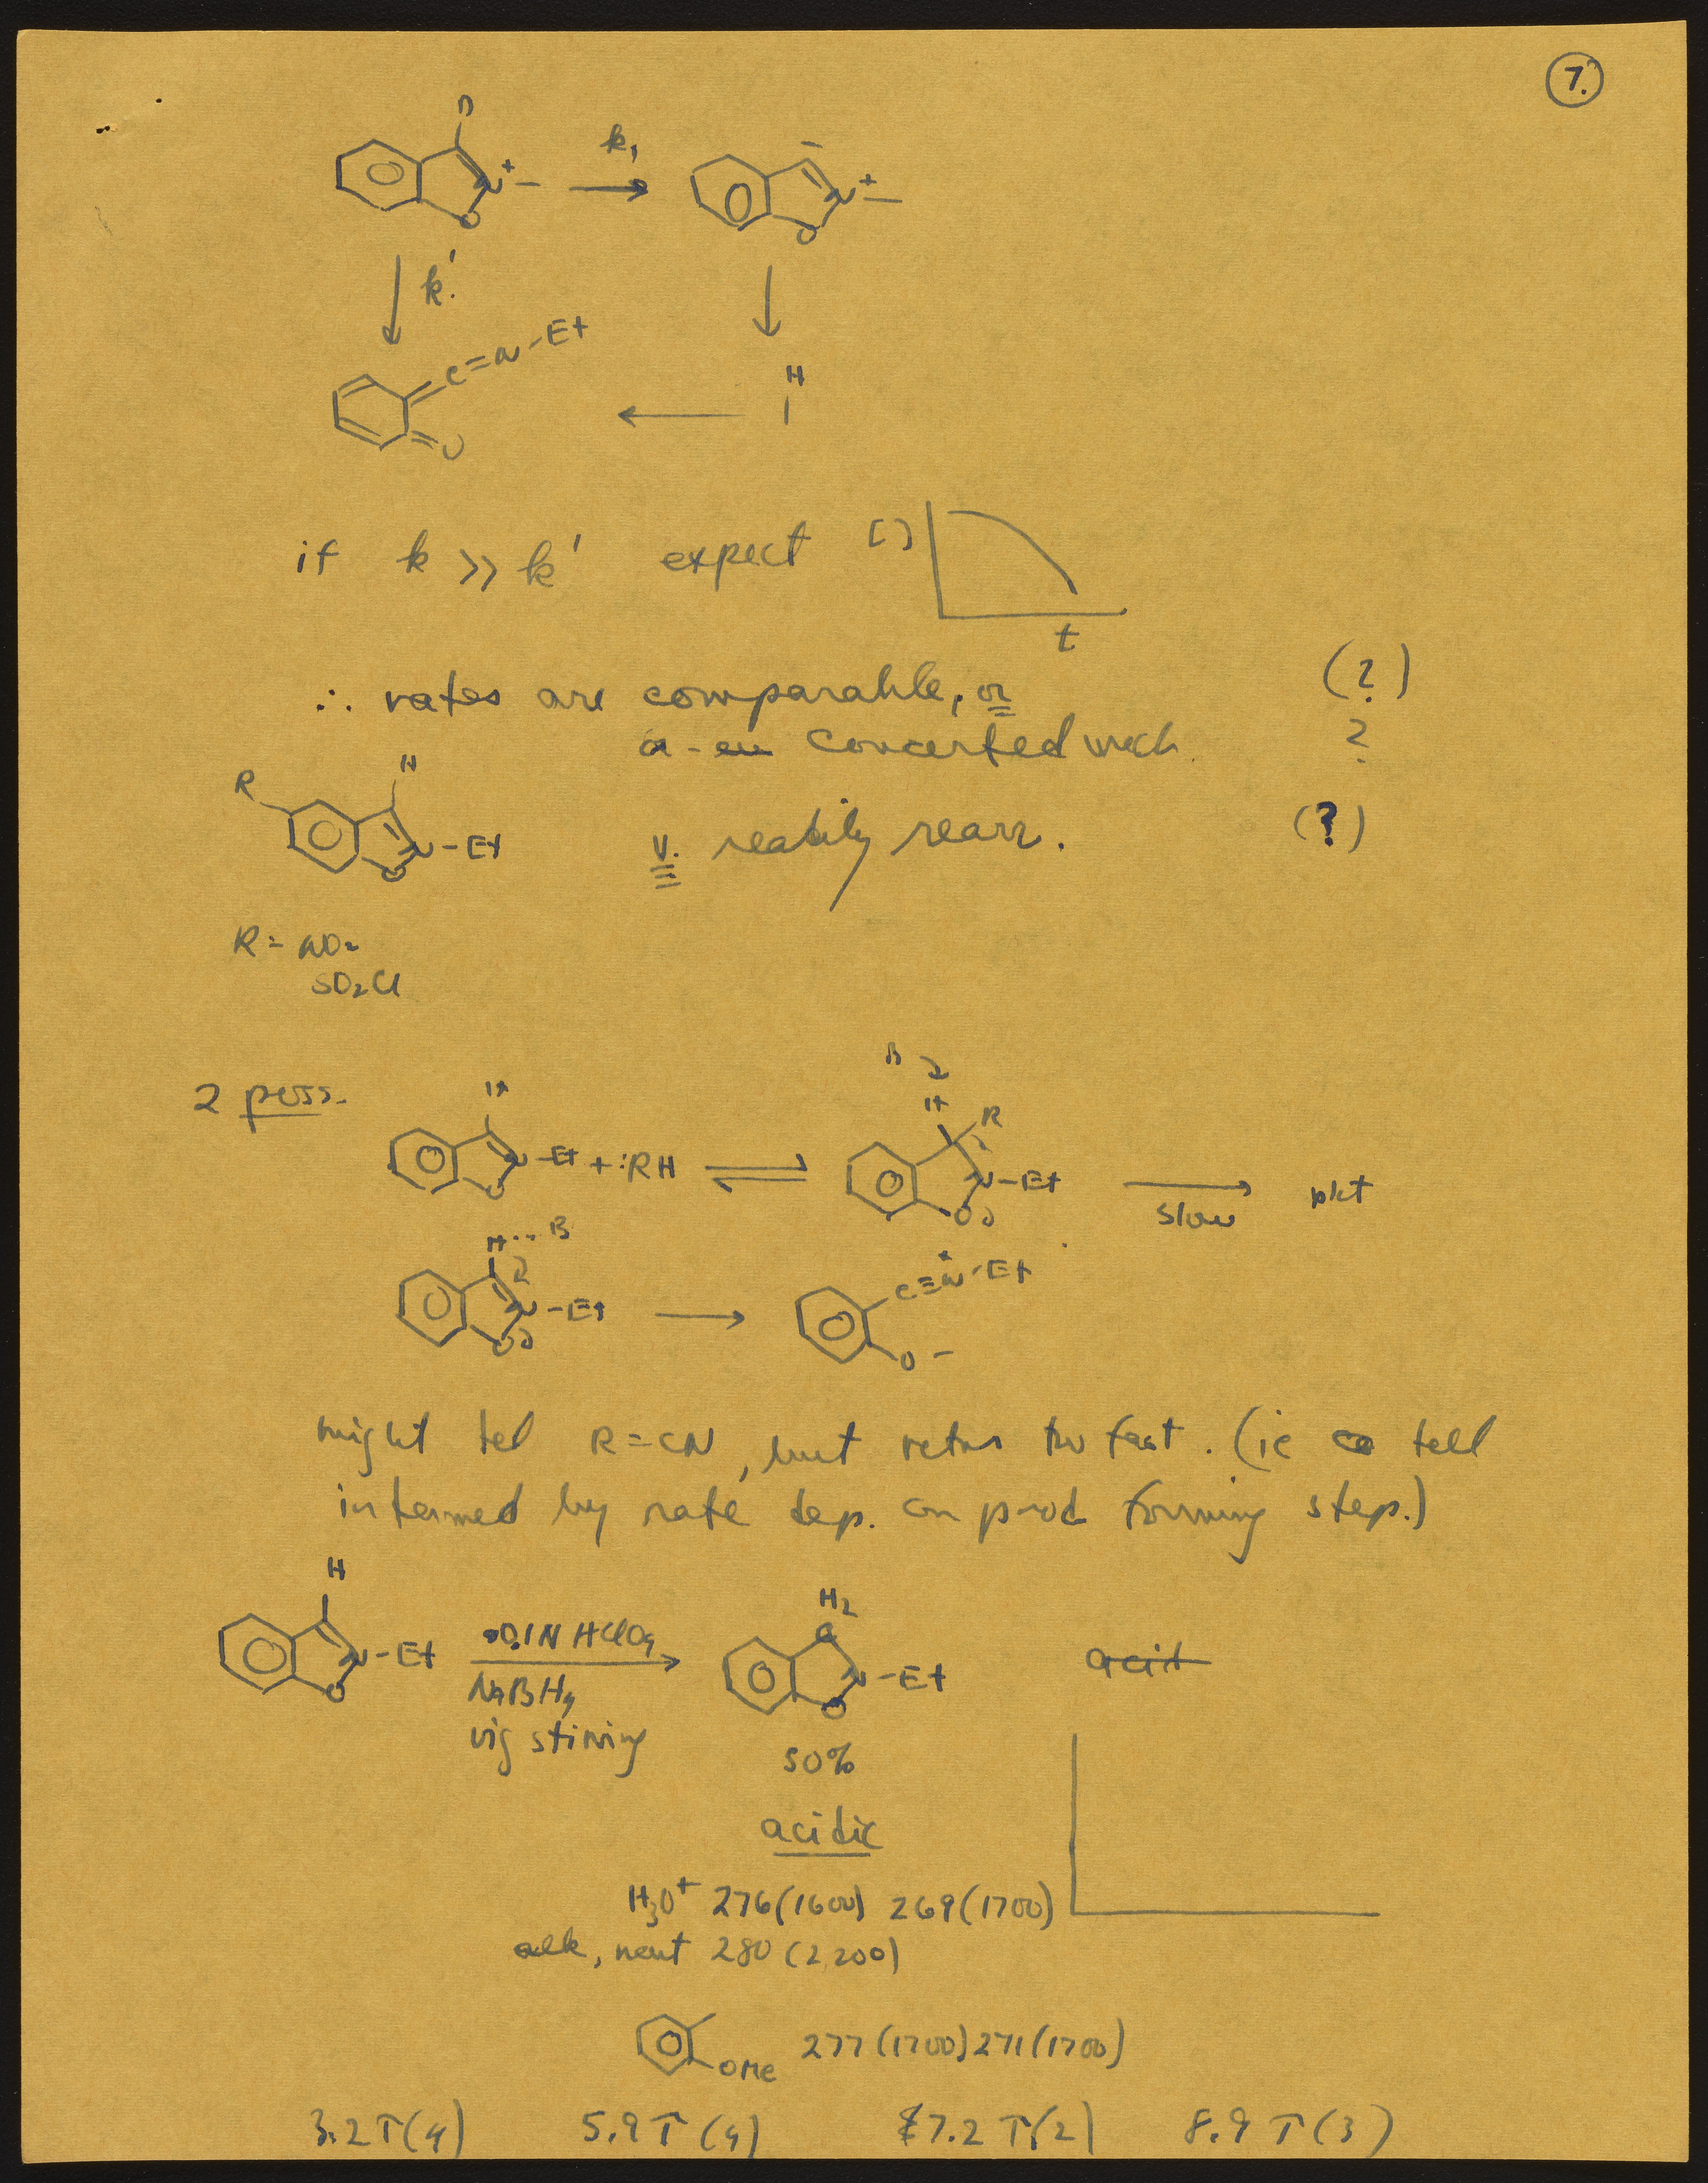 7.
D
k₁
N⁺ –
O
N⁺ –
O
k'
C=N-Et
O
H
if k >> k' expect [ ]
t
∴ rates are comparable, or (?)
concerted mech. ?
R H
N -Et v. readily rearr. (?)
O
R = NO₂
SO₂Cl
2 poss.
H
N -Et + :RH
O
B
H R
N-Et
O
slow
pdt
H ... B
N -Et
O
C≡N⁺-Et
O –
might tell R=CN, but retro too fast. (ie tell
intermed by rate dep. on prod forming step.)
H
N -Et
O
0.1N HClO₄
NaBH₄
vig stirring
H₂
C
N -Et
O
acid
50%
acidic
H₃O⁺ 276(1600) 269(1700)
alk, neut 280 (2200)
OMe 277 (1700) 271 (1700)
3.2 T(4) 5.9 T(4) 7.2 T(2) 8.9 T(3)